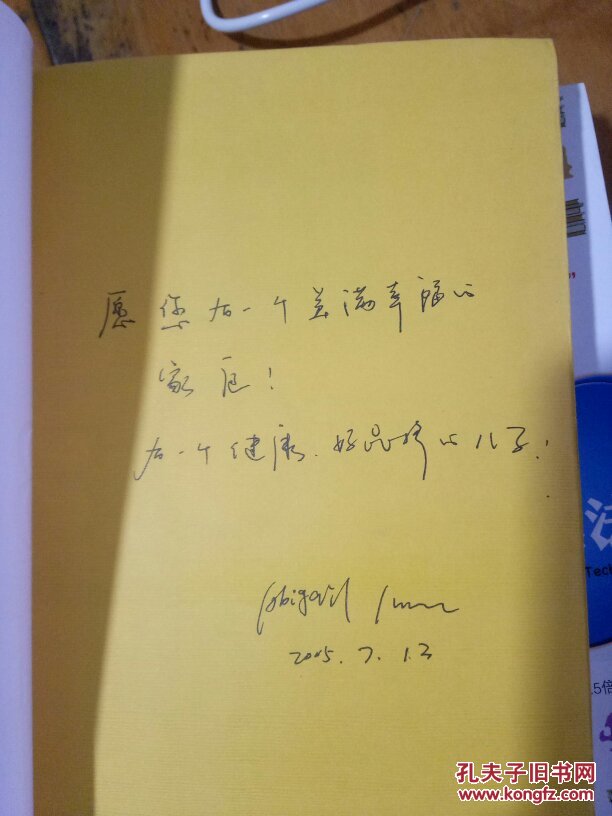 愿您有一个美满幸福的
家庭!
有一个健康、好品格的儿子!
Abigail
2005.7.12
Tech
.5倍
孔夫子旧书网
www.kongfz.com